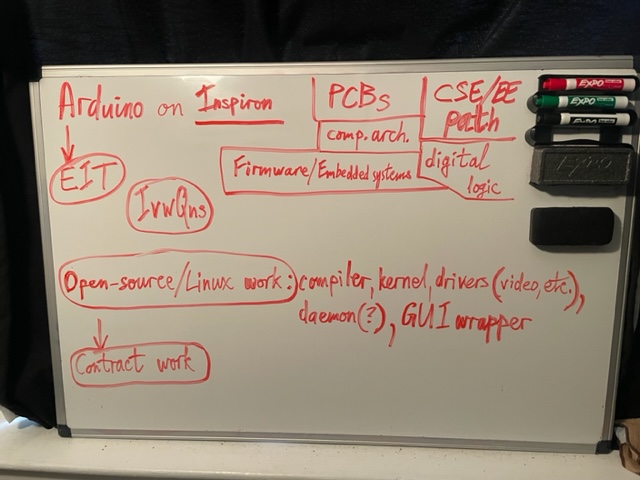 Arduino on Inspiron
PCBs
CSE/EE
path
comp. arch.
Firmware/Embedded systems
digital
logic
EIT
IvwQns
Open-source/Linux work: compiler, kernel, drivers (video, etc.),
daemon(?), GUI wrapper
Contract work
EXPO
EXPO
EXPO
EXPO